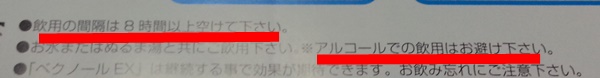 ●飲用の間隔は８時間以上空けて下さい。
●お水またはぬるま湯と共にご飲用下さい。※アルコールでの飲用はお避け下さい。
●「ベクノールEX」は継続する事で効果が期待できます。お飲み忘れにご注意下さい。